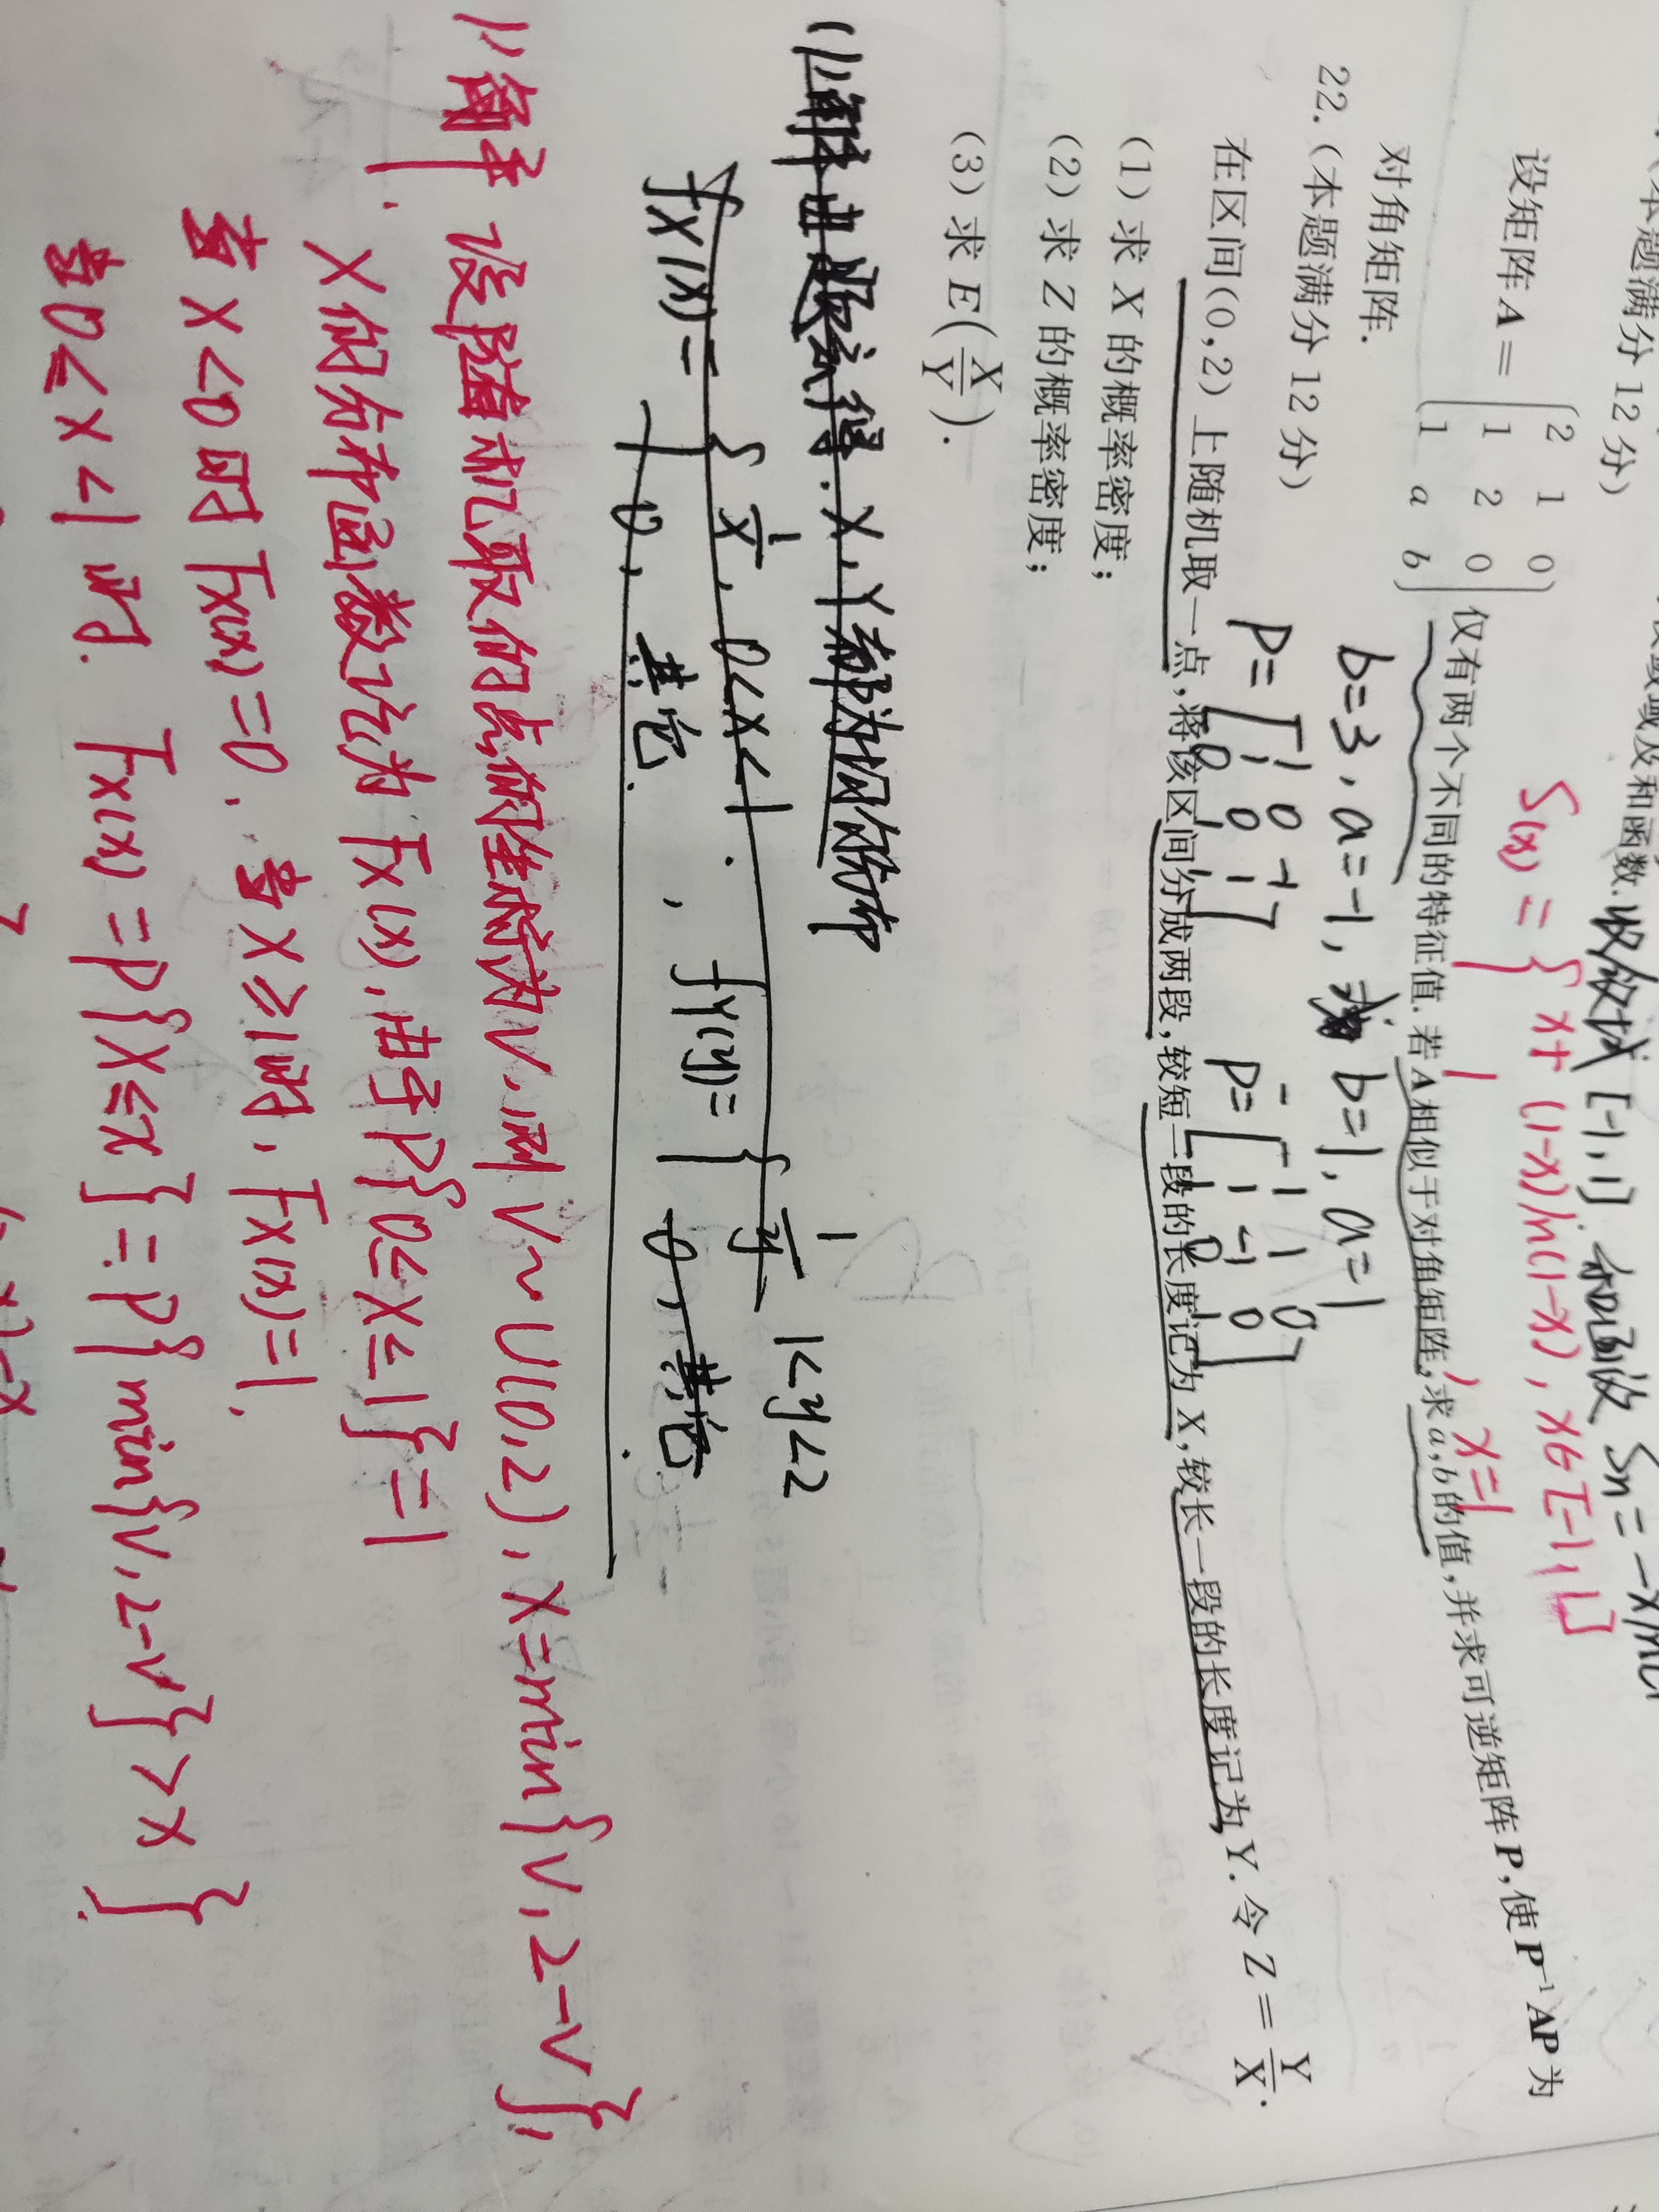 (本题满分 12 分)
设矩阵 A = (2 1 0
1 2 0
1 a b) 仅有两个不同的特征值. 若 A 相似于对角矩阵, 求 a, b 的值, 并求可逆矩阵 P, 使 P⁻¹AP 为
对角矩阵.
域及和函数. 收敛域 [-1,1]. 和函数 Sn = -x
S(x) = { x+(1-x)ln(1-x), x∈[-1,1)
1 , x=1
b=3, a=-1, b=1, a=1
P = [1 0 -1
1 0 1
0 1 1]
P = [-1 1 0
1 -1 0
1 0 1]
22. (本题满分 12 分)
在区间(0,2)上随机取一点, 将该区间分成两段, 较短一段的长度记为 X, 较长一段的长度记为 Y. 令 Z = Y/X.
(1) 求 X 的概率密度;
(2) 求 Z 的概率密度;
(3) 求 E(X/Y).
(1) 解: 由题意得. X, Y都为均匀分布
fX(x) = { 1/x, 0<x<1.
0, 其它.
, fY(y) = { 1/y, 1<y<2
0, 其它.
1) 解: 设随机取的点的坐标为V, 则 V~U(0,2), X=min{V, 2-V};
X的分布函数记为 Fx(x), 由于P{0≤X≤1}=1
当 x<0时 Fx(x)=0. 当 x≥1时, Fx(x)=1.
当0≤x<1时. Fx(x) = P{X≤x} = P{min{V, 2-V}>x}